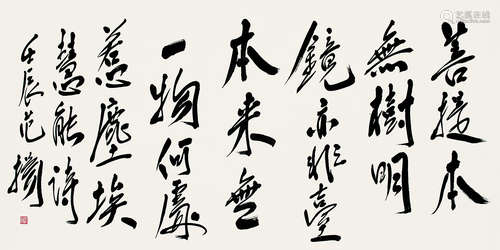 菩提本
無樹明
鏡亦非臺
本来無
一物何處
惹塵埃
慧能詩
壬辰范